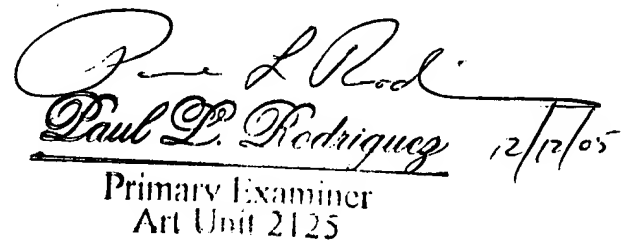 Paul L. Rodriguez 12/12/05
Primary Examiner
Art Unit 2125